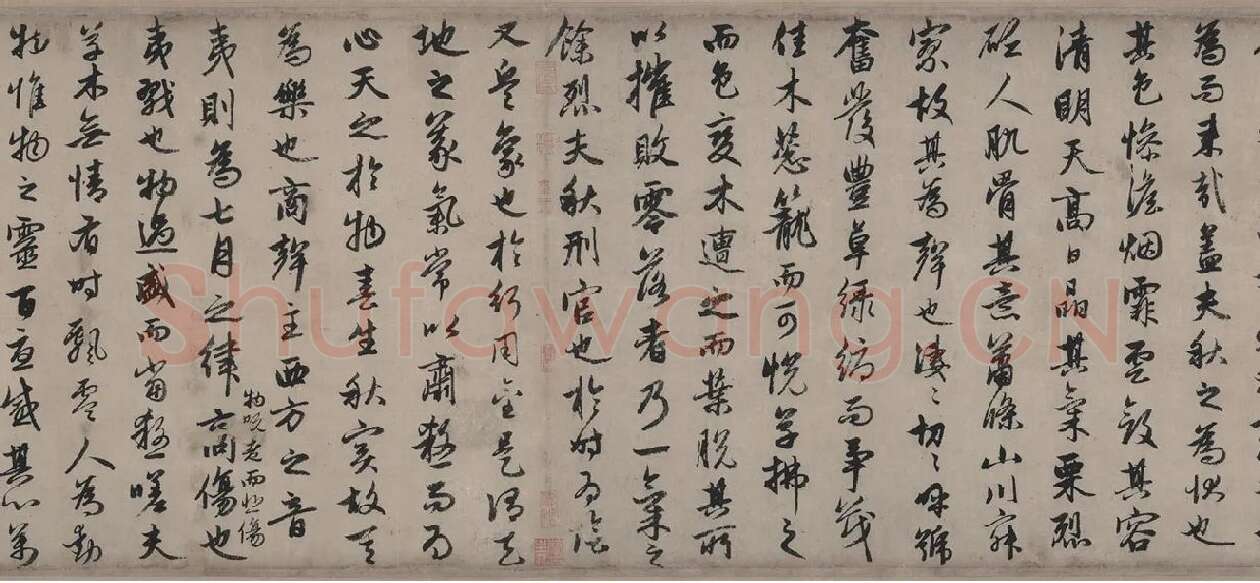 為而来哉盖夫秋之為状也
其色惨澹烟霏雲斂其容
清明天髙日晶其氣栗烈
砭人肌骨其意蕭條山川寂
寥故其為聲也淒〻切〻呼號
奮發豐草緑縟而爭茂
佳木葱籠而可悅草拂之
而色變木遭之而葉脫其所
以摧敗零落者乃一氣之
餘烈夫秋刑官也於時為陰
又兵象也於行用金是謂天
地之義氣常以肅殺而為
心天之於物春生秋實故其
為樂也商聲主西方之音
夷則為七月之律商傷也
物既老而悲傷
夷戮也物過盛而當殺嗟夫
草木無情有時飄零人為動
物惟物之靈百憂感其心萬
Shufawang.CN